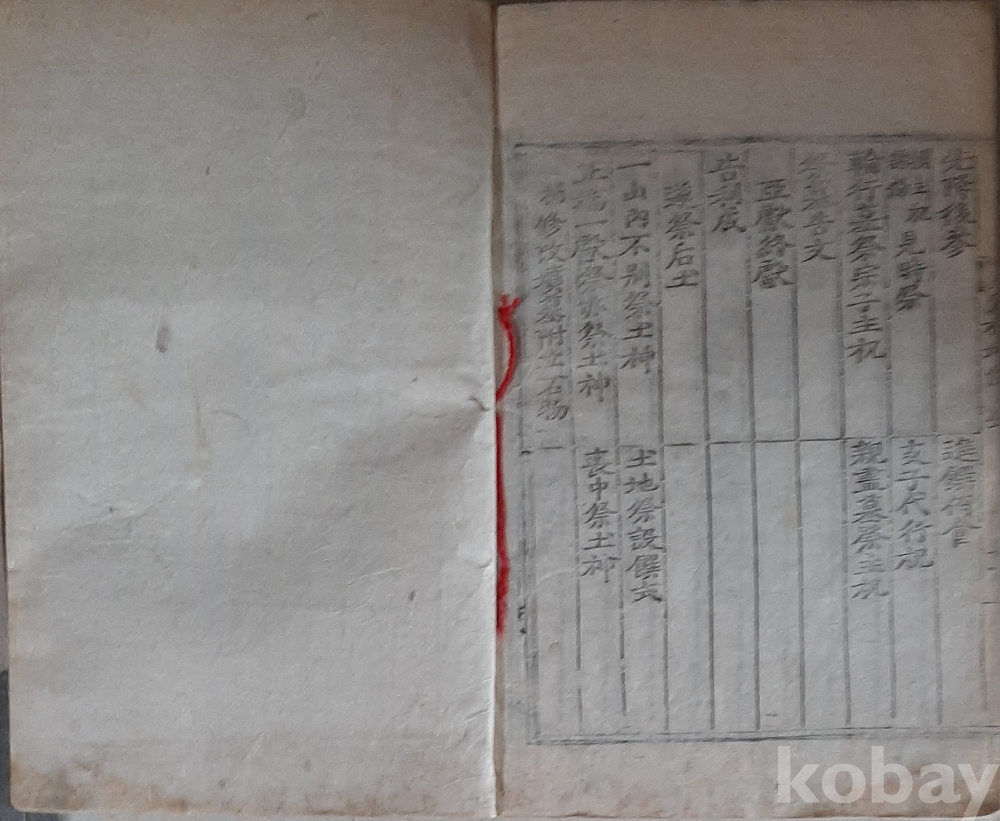 先降後參
進饌侑食
主祝見時祭
支子代行祝
輪行墓祭宗子主祝
親盡墓祭主祝
祭墓告文
亞獻終獻
告利成
遂祭后土
一山內不別祭土神
土地祭設饌
一獻祭土神
喪中祭土神
修改墳墓附立石物
kobay